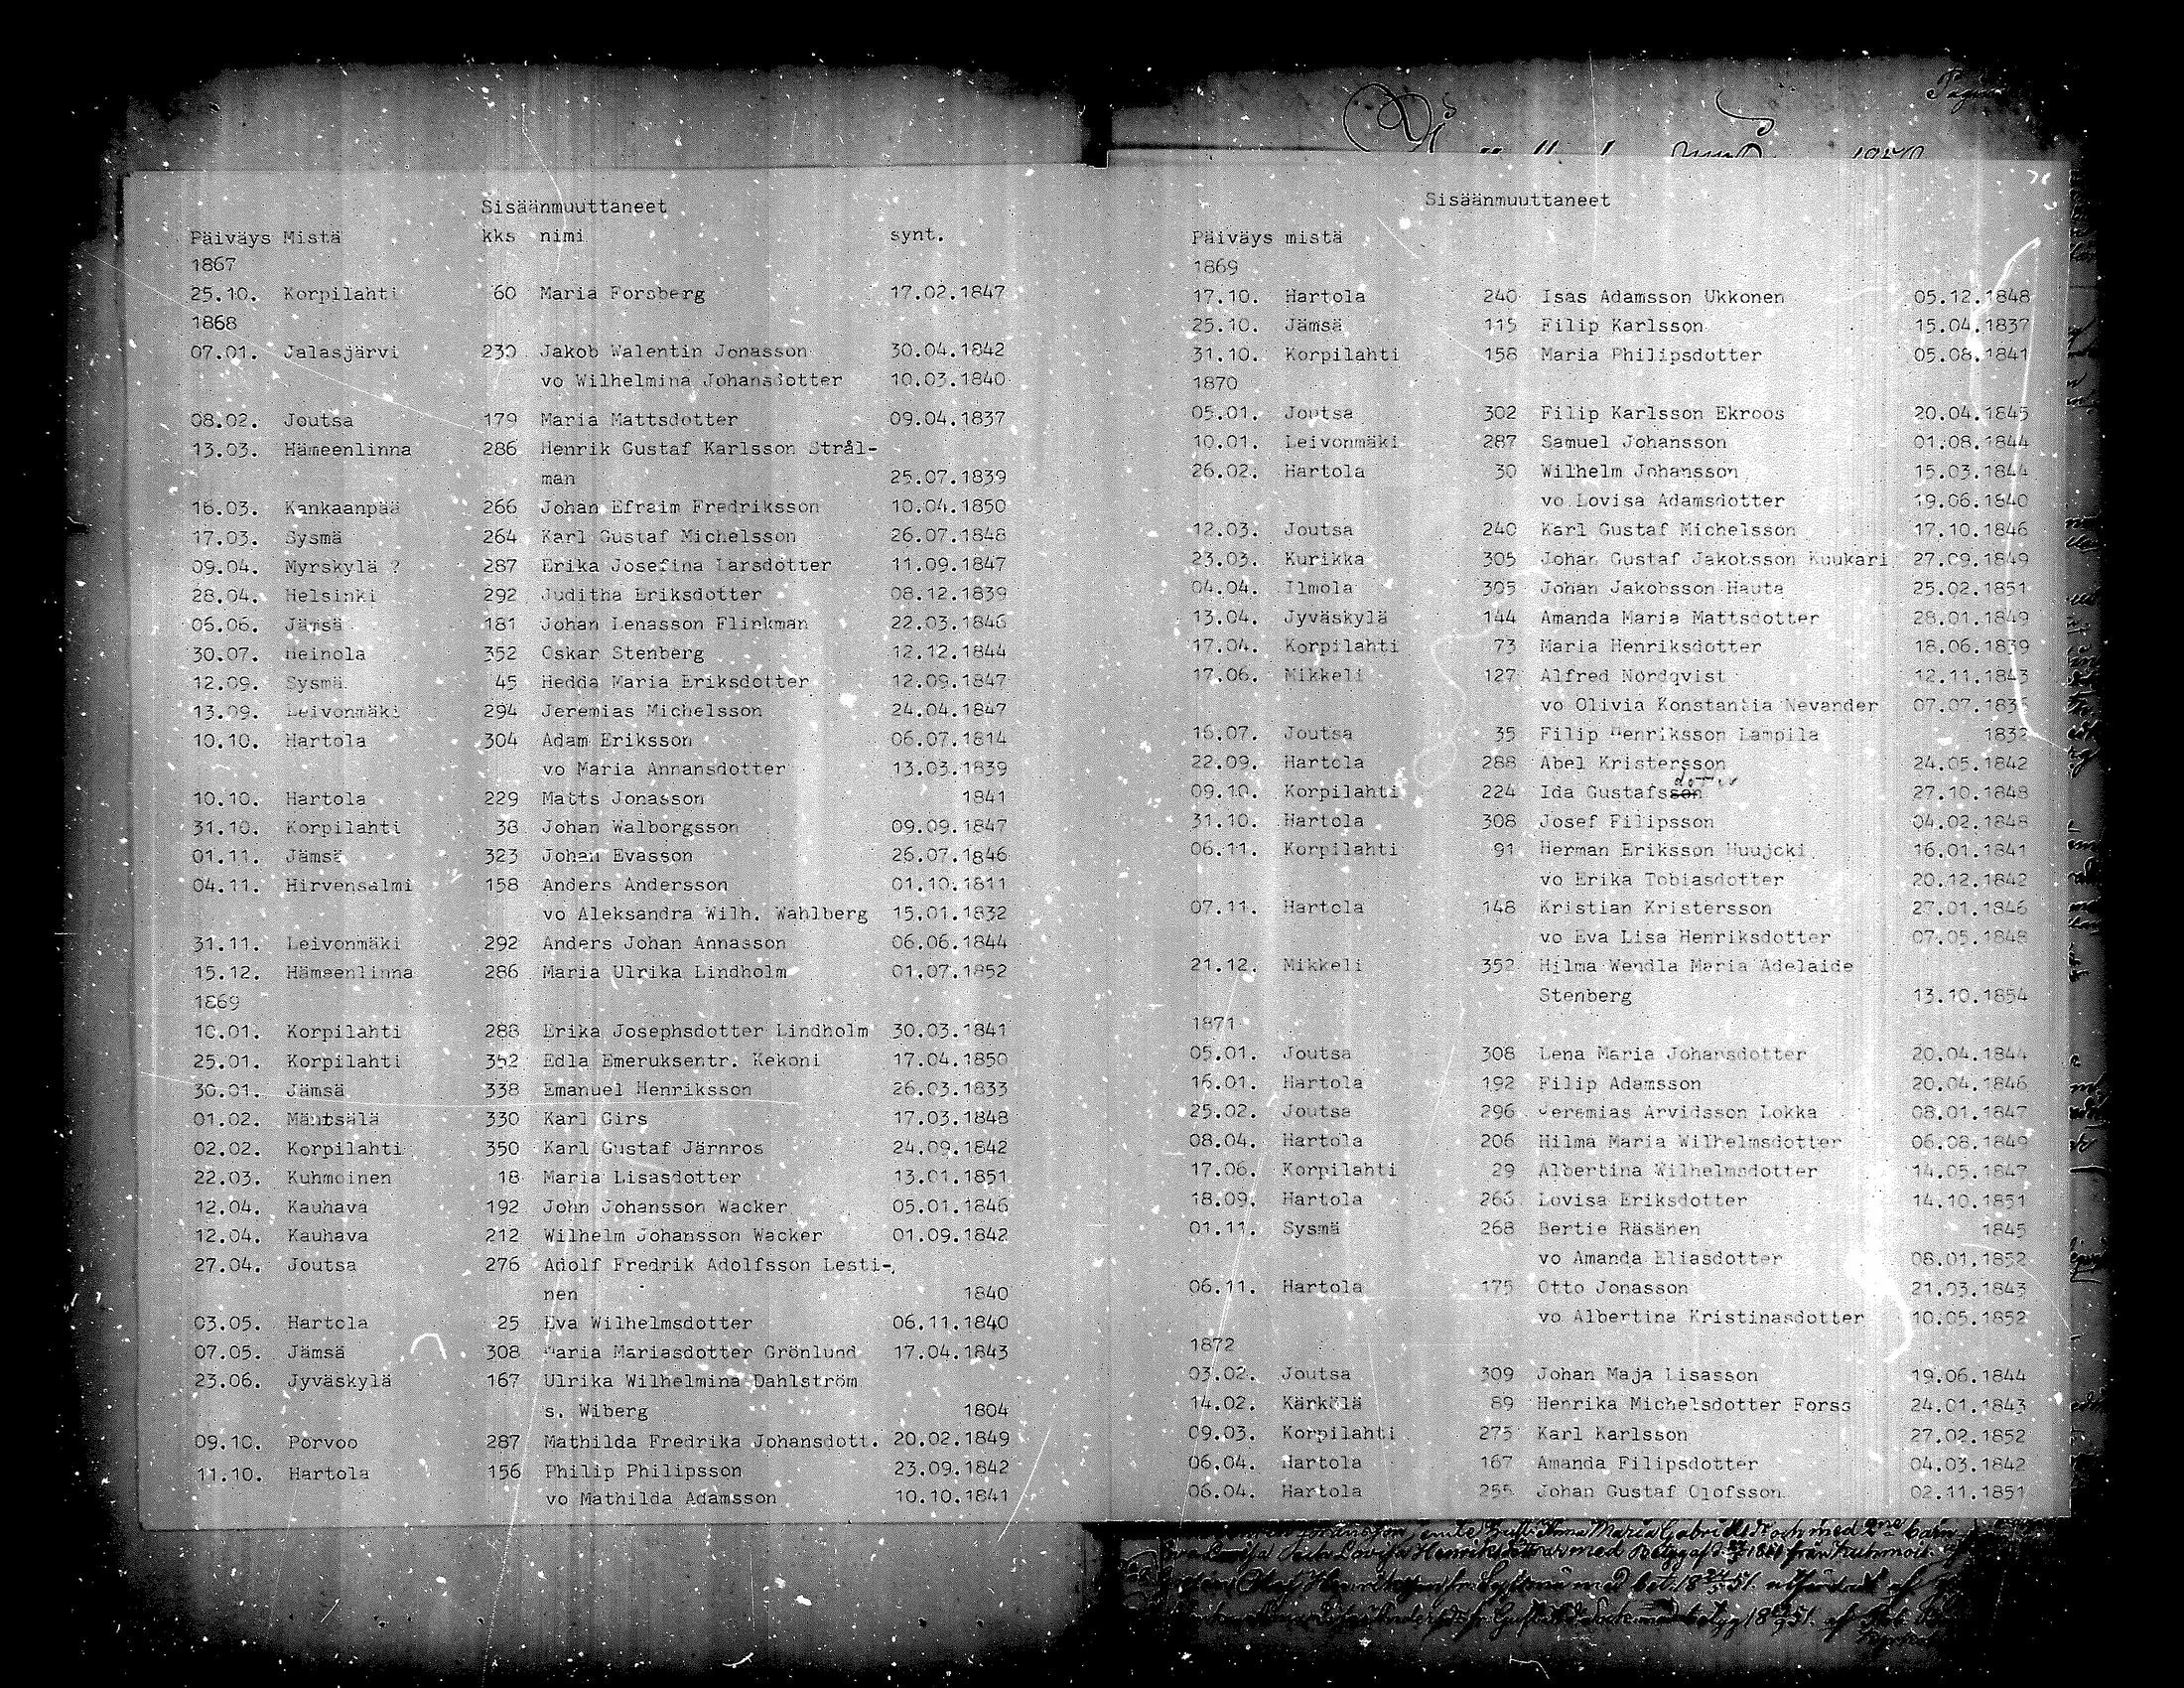 Sisäänmuuttaneet
Päiväys Mistä kks nimi synt.
1867
25.10. Korpilahti 60 Maria Forsberg 17.02.1847
1868
07.01. Jalasjärvi 230 Jakob Walentin Jonasson 30.04.1842
vo Wilhelmina Johansdotter 10.03.1840
08.02. Joutsa 179 Maria Mattsdotter 09.04.1837
13.03. Hämeenlinna 286 Henrik Gustaf Karlsson Strål-
man 25.07.1839
16.03. Kankaanpää 266 Johan Efraim Fredriksson 10.04.1850
17.03. Sysmä 264 Karl Gustaf Michelsson 26.07.1848
09.04. Myrskylä ? 287 Erika Josefina Larsdotter 11.09.1847
28.04. Helsinki 292 Juditha Eriksdotter 08.12.1839
05.06. Jämsä 181 Johan Lenasson Flinkman 22.03.1846
30.07. Heinola 352 Oskar Stenberg 12.12.1844
12.09. Sysmä 45 Hedda Maria Eriksdotter 12.09.1847
13.09. Leivonmäki 294 Jeremias Michelsson 24.04.1847
10.10. Hartola 304 Adam Eriksson 06.07.1814
vo Maria Annansdotter 13.03.1839
10.10. Hartola 229 Matts Jonasson 1841
31.10. Korpilahti 38 Johan Walborgsson 09.09.1847
01.11. Jämsä 323 Johan Evasson 26.07.1846
04.11. Hirvensalmi 158 Anders Andersson 01.10.1811
vo Aleksandra Wilh. Wahlberg 15.01.1832
31.11. Leivonmäki 292 Anders Johan Annasson 06.06.1844
15.12. Hämeenlinna 286 Maria Ulrika Lindholm 01.07.1852
1869
10.01. Korpilahti 288 Erika Josephsdotter Lindholm 30.03.1841
25.01. Korpilahti 352 Edla Emeruksentr. Kekoni 17.04.1850
30.01. Jämsä 338 Emanuel Henriksson 26.03.1833
01.02. Mäntsälä 330 Karl Girs 17.03.1848
02.02. Korpilahti 350 Karl Gustaf Järnros 24.09.1842
22.03. Kuhmoinen 18 Maria Lisasdotter 13.01.1851
12.04. Kauhava 192 John Johansson Wacker 05.01.1846
12.04. Kauhava 212 Wilhelm Johansson Wacker 01.09.1842
27.04. Joutsa 276 Adolf Fredrik Adolfsson Lesti-
nen 1840
03.05. Hartola 25 Eva Wilhelmsdotter 06.11.1840
07.05. Jämsä 308 Maria Mariasdotter Grönlund 17.04.1843
23.06. Jyväskylä 167 Ulrika Wilhelmina Dahlström
s. Wiberg 1804
09.10. Porvoo 287 Mathilda Fredrika Johansdott. 20.02.1849
11.10. Hartola 156 Philip Philipsson 23.09.1842
vo Mathilda Adamsson 10.10.1841
Sisäänmuuttaneet
Päiväys mistä
1869
17.10. Hartola 240 Isas Adamsson Ukkonen 05.12.1848
25.10. Jämsä 115 Filip Karlsson 15.04.1837
31.10. Korpilahti 158 Maria Philipsdotter 05.08.1841
1870
05.01. Joutsa 302 Filip Karlsson Ekroos 20.04.1845
10.01. Leivonmäki 287 Samuel Johansson 01.08.1844
26.02. Hartola 30 Wilhelm Johansson 15.03.1844
vo Lovisa Adamsdotter 19.06.1840
12.03. Joutsa 240 Karl Gustaf Michelsson 17.10.1846
23.03. Kurikka 305 Johan Gustaf Jakobsson Kuukari 27.09.1849
04.04. Ilmola 305 Johan Jakobsson Hauta 25.02.1851
13.04. Jyväskylä 144 Amanda Maria Mattsdotter 28.01.1849
17.04. Korpilahti 73 Maria Henriksdotter 18.06.1839
17.06. Mikkeli 127 Alfred Nordqvist 12.11.1843
vo Olivia Konstantia Nevander 07.07.1835
16.07. Joutsa 35 Filip Henriksson Lampila 1832
22.09. Hartola 288 Abel Kristersson 24.05.1842
09.10. Korpilahti 224 Ida Gustafsson dotter 27.10.1848
31.10. Hartola 308 Josef Filipsson 04.02.1848
06.11. Korpilahti 91 Herman Eriksson Huujcki 16.01.1841
vo Erika Tobiasdotter 20.12.1842
07.11. Hartola 148 Kristian Kristersson 27.01.1846
vo Eva Lisa Henriksdotter 07.05.1848
21.12. Mikkeli 352 Hilma Wendla Maria Adelaide
Stenberg 13.10.1854
1871
05.01. Joutsa 308 Lena Maria Johansdotter 20.04.1844
16.01. Hartola 192 Filip Adamsson 20.04.1846
25.02. Joutsa 296 Jeremias Arvidsson Lokka 08.01.1847
08.04. Hartola 206 Hilma Maria Wilhelmsdotter 06.08.1849
17.06. Korpilahti 29 Albertina Wilhelmsdotter 14.05.1847
18.09. Hartola 266 Lovisa Eriksdotter 14.10.1851
01.11. Sysmä 268 Bertie Räsänen 1845
vo Amanda Eliasdotter 08.01.1852
06.11. Hartola 175 Otto Jonasson 21.03.1843
vo Albertina Kristinasdotter 10.05.1852
1872
03.02. Joutsa 309 Johan Maja Lisasson 19.06.1844
14.02. Kärkölä 89 Henrika Michelsdotter Forss 24.01.1843
09.03. Korpilahti 275 Karl Karlsson 27.02.1852
06.04. Hartola 167 Amanda Filipsdotter 04.03.1842
06.04. Hartola 255 Johan Gustaf Olofsson 02.11.1851